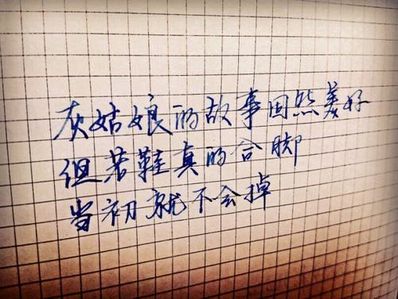 灰姑娘的故事固然美好
但若鞋真的合脚
当初就不会掉